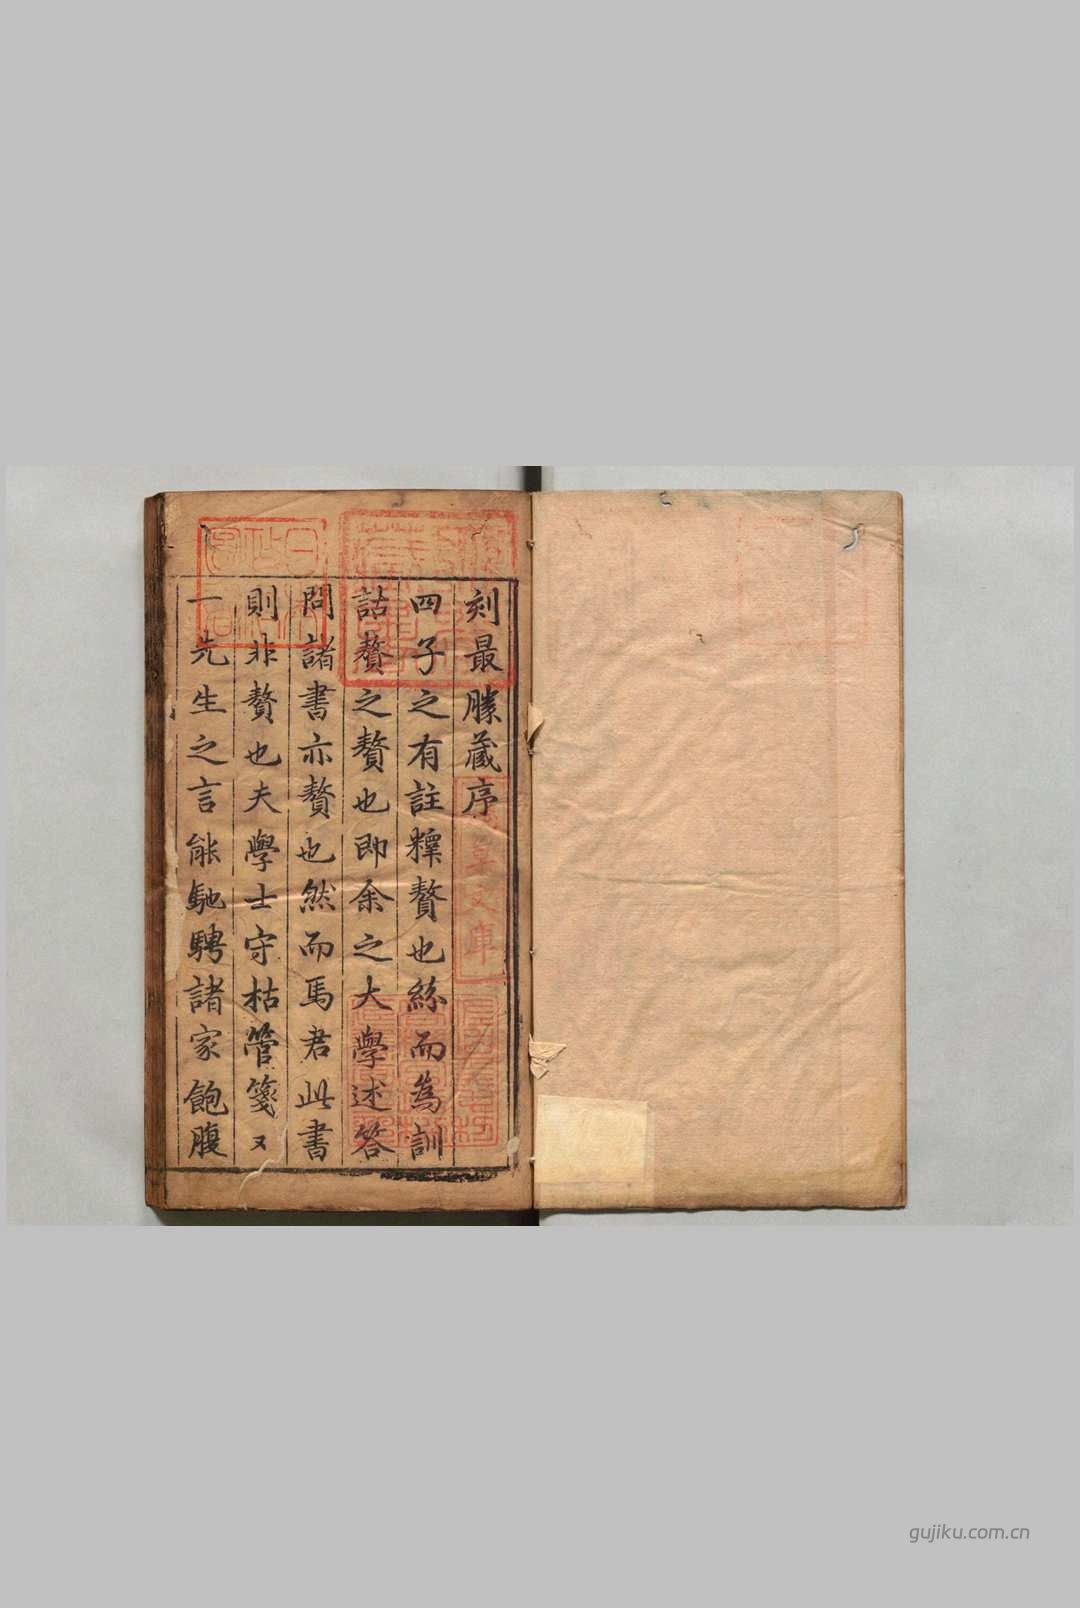 刻最勝藏序
四子之有註釋贅也繇而為訓
詁贅之贅也即余之大學述答
問諸書亦贅也然而馬君此書
則非贅也夫學士守枯管箋又
一先生之言能馳騁諸家飽腹
文庫
gujiku.com.cn